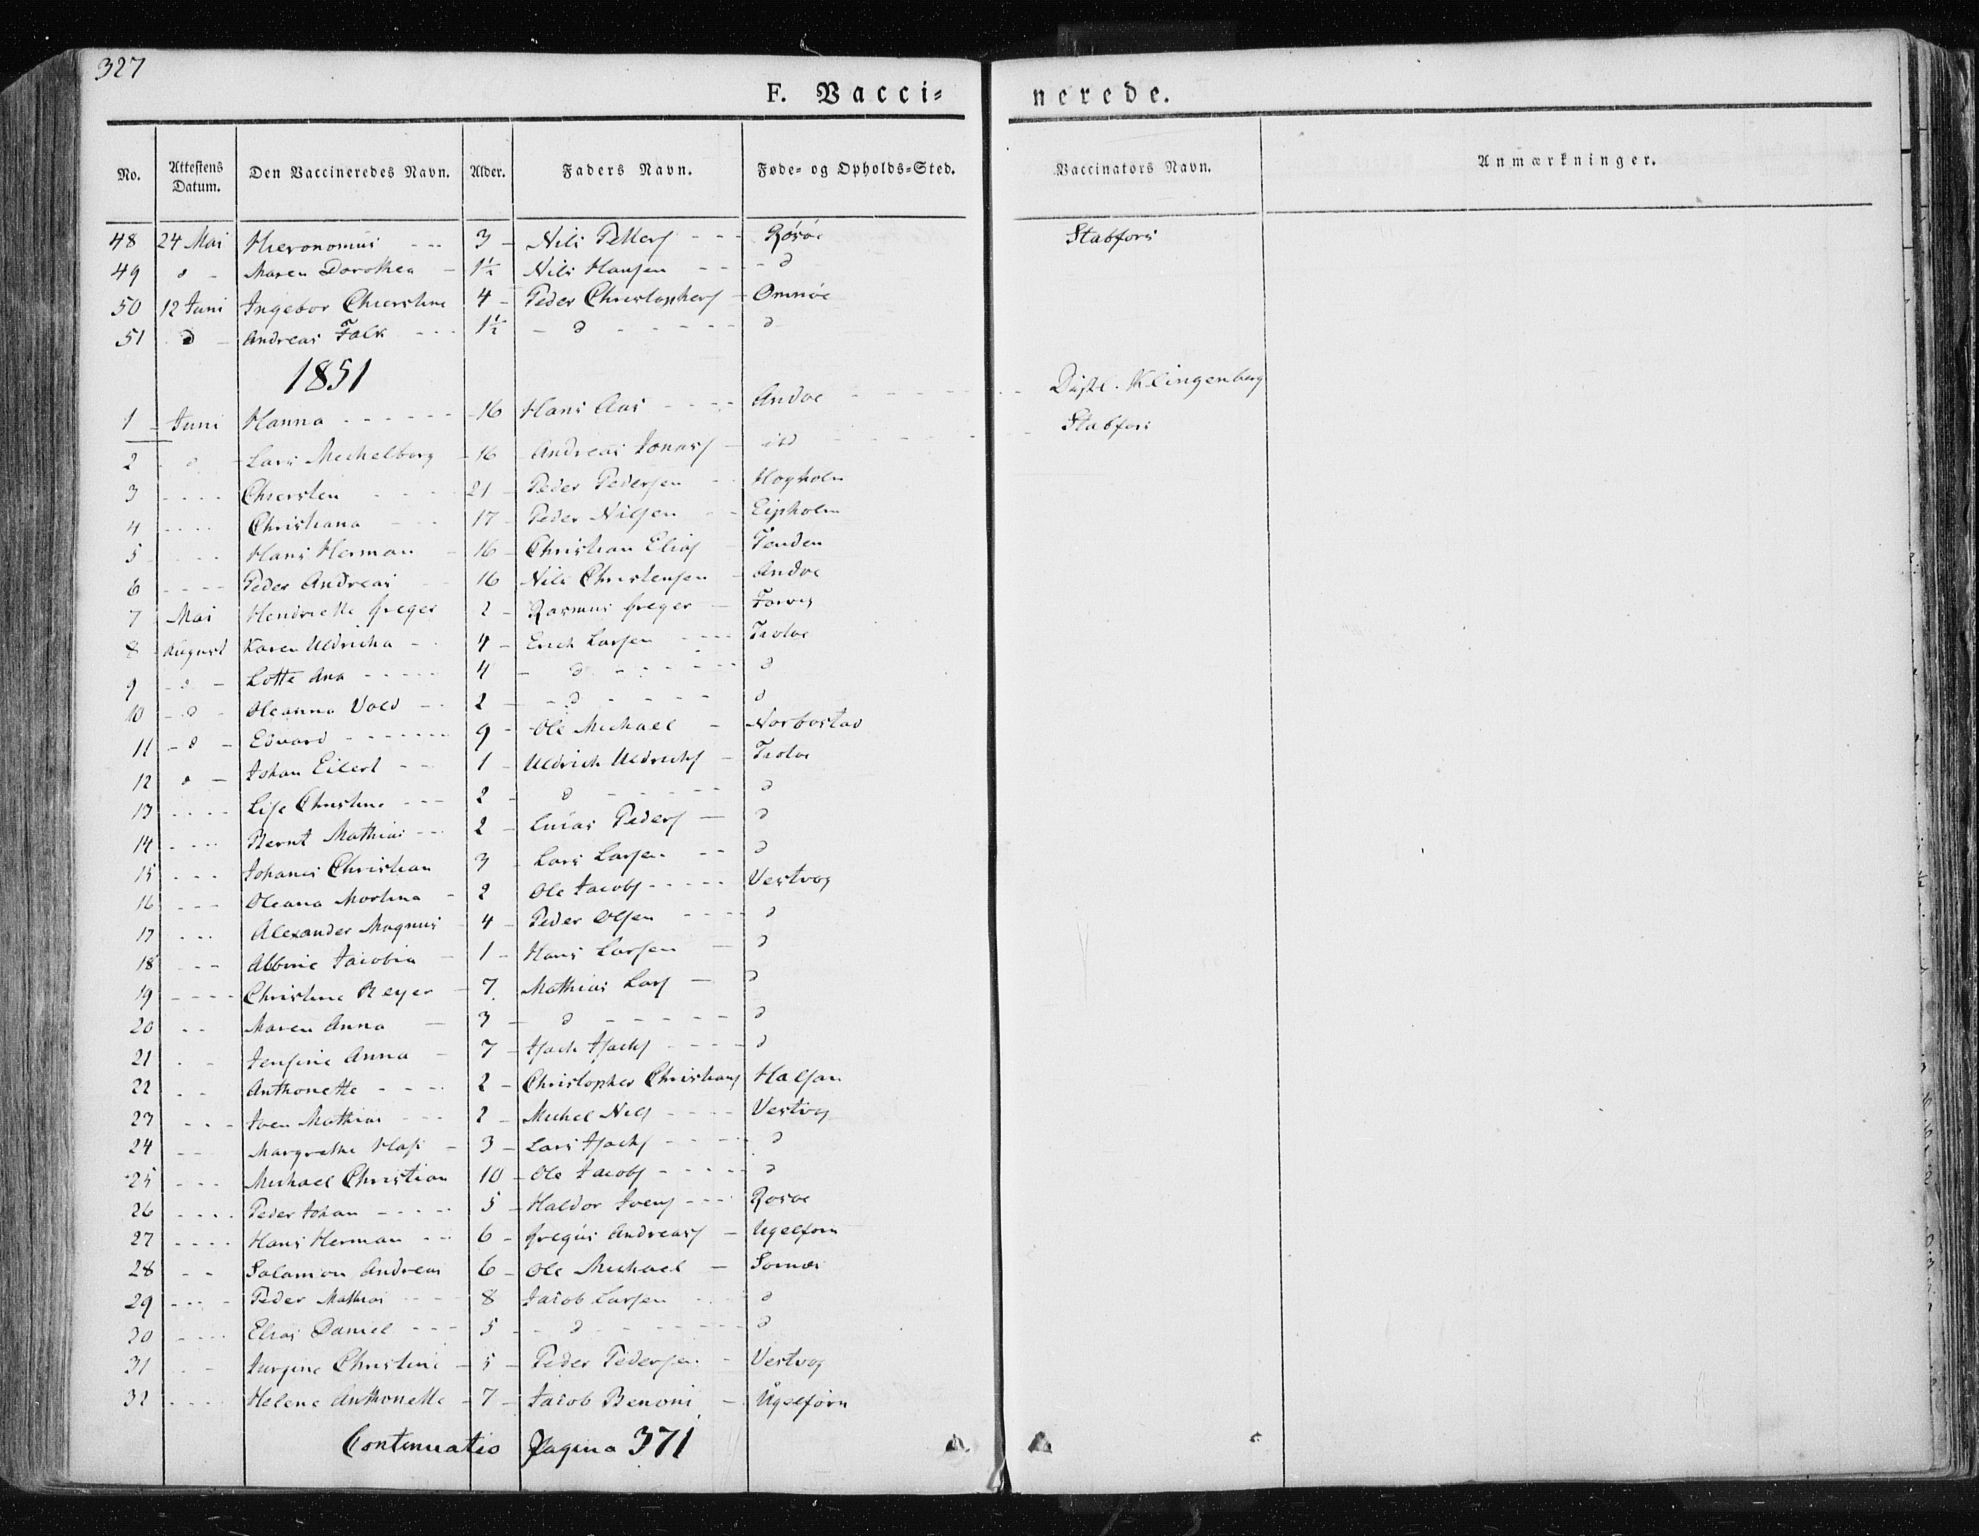 327
F. Vacci= nerede.
No. Attestens Datum. Den Vaccineredes Navn. Alder. Faders Navn. Føde- og Opholds-Sted. Vaccinators Navn. Anmærkninger.
48 24 Mai Hieronomus - - - 3 - Nils Petters - - - Røsøe Stabfors
49 d - Maren Dorothea - 1½ Nils Hansen - - - d
50 12 Juni Ingebor Chierstine 4 - Peder Christophers - Omnøe
51 d - Andreas Falk - - - 1½ - d - - - - - - d
1851
1 - Juni Hanna - - - - - 16 Hans Aas - - - - Andøe - - - - - - Distl. Klingenberg
2 d Lars Mechelborg - 16 Andreas Jonas - itd - - - - - - Stabfors
3 - - - - Chiersten - - - - 21 - Peder Pedersen - - Høgholm
4 - - - - Christiana - - - 17 - Peder Nilsen - - Eipholm
5 - - - Hans Herman - 16 - Christian Elias - Tenden
6 - - - - Peder Andreas - - 16 Nils Christensen - Andøe
7 Mai Hendriette Greger 2 - Rasmus Greger - Forvig
8 August Karen Uldricha - - 4 - Erich Larsen - - - - Troløe
9 - d - Lotte Ana - - - - - 4 - d - - - - - - d
10 - d - Oleanna Vold - - 2 - - d - - - - - d
11 - d - Edvard - - - - - - - 9 - Ole Michael - Norbostad
12 d - Johan Eilert - - 1 - Uldrich Uldrichs - Troløe
13 - - - - Lise Christine - - - 2 - d - - - - - - d
14 - - - - Bernt Mathias - - - 2 - Lucas Peders - d
15 - - - Johanes Christian 3 - Lars Larsen - - d
16 - - - Oleana Mortina - 2 Ole Jacobs - - - - - Vestvog
17 - - - Alexander Magnus 4 - Peder Olsen - - - - d
18 - - - Albine Jacobia - 1 - Hans Larsen - d
19 - - - - Christine Meyer - 7 Mathias Lars - d
20 - - Maren Anna - 3 - d - - - - - - d
21 - - Jensine Anna - 7 - Isach Isachs - - - - d
22 - - Anthonette - - - - 2 - Christopher Christians Halsan
23 - - - Iven Mathias - - - 2 - Michel Nils - - - - Vestvog
24 - - Margrethe - 3 - Lars Isachs - - - - - d
25 - - - Michael Christian 10 - Ole Jacobs - - - - - d
26 - - - - Peder Johan - - - - - 5 - Haldor Ivens - - - - Rosøe
27 - - - - Hans Herman - - - 6 - Gregus Andreas - Ugelforn
28 - - Salamon Andreas 6 - Ole Michael - Somnæs
29 - - - - Peder Mathias - - - 8 Jacob Larsen - - - d
30 - - - - Elias Daniel - - - 5 - - d - - - - - - - d
31 - - Jurgine Christine - 5 - Peder Pedersen - Vestvog
32 - - - - Helene Anthonette - 7 - Jacob Benoni - Ugelforn
Continuatio Pagina 371